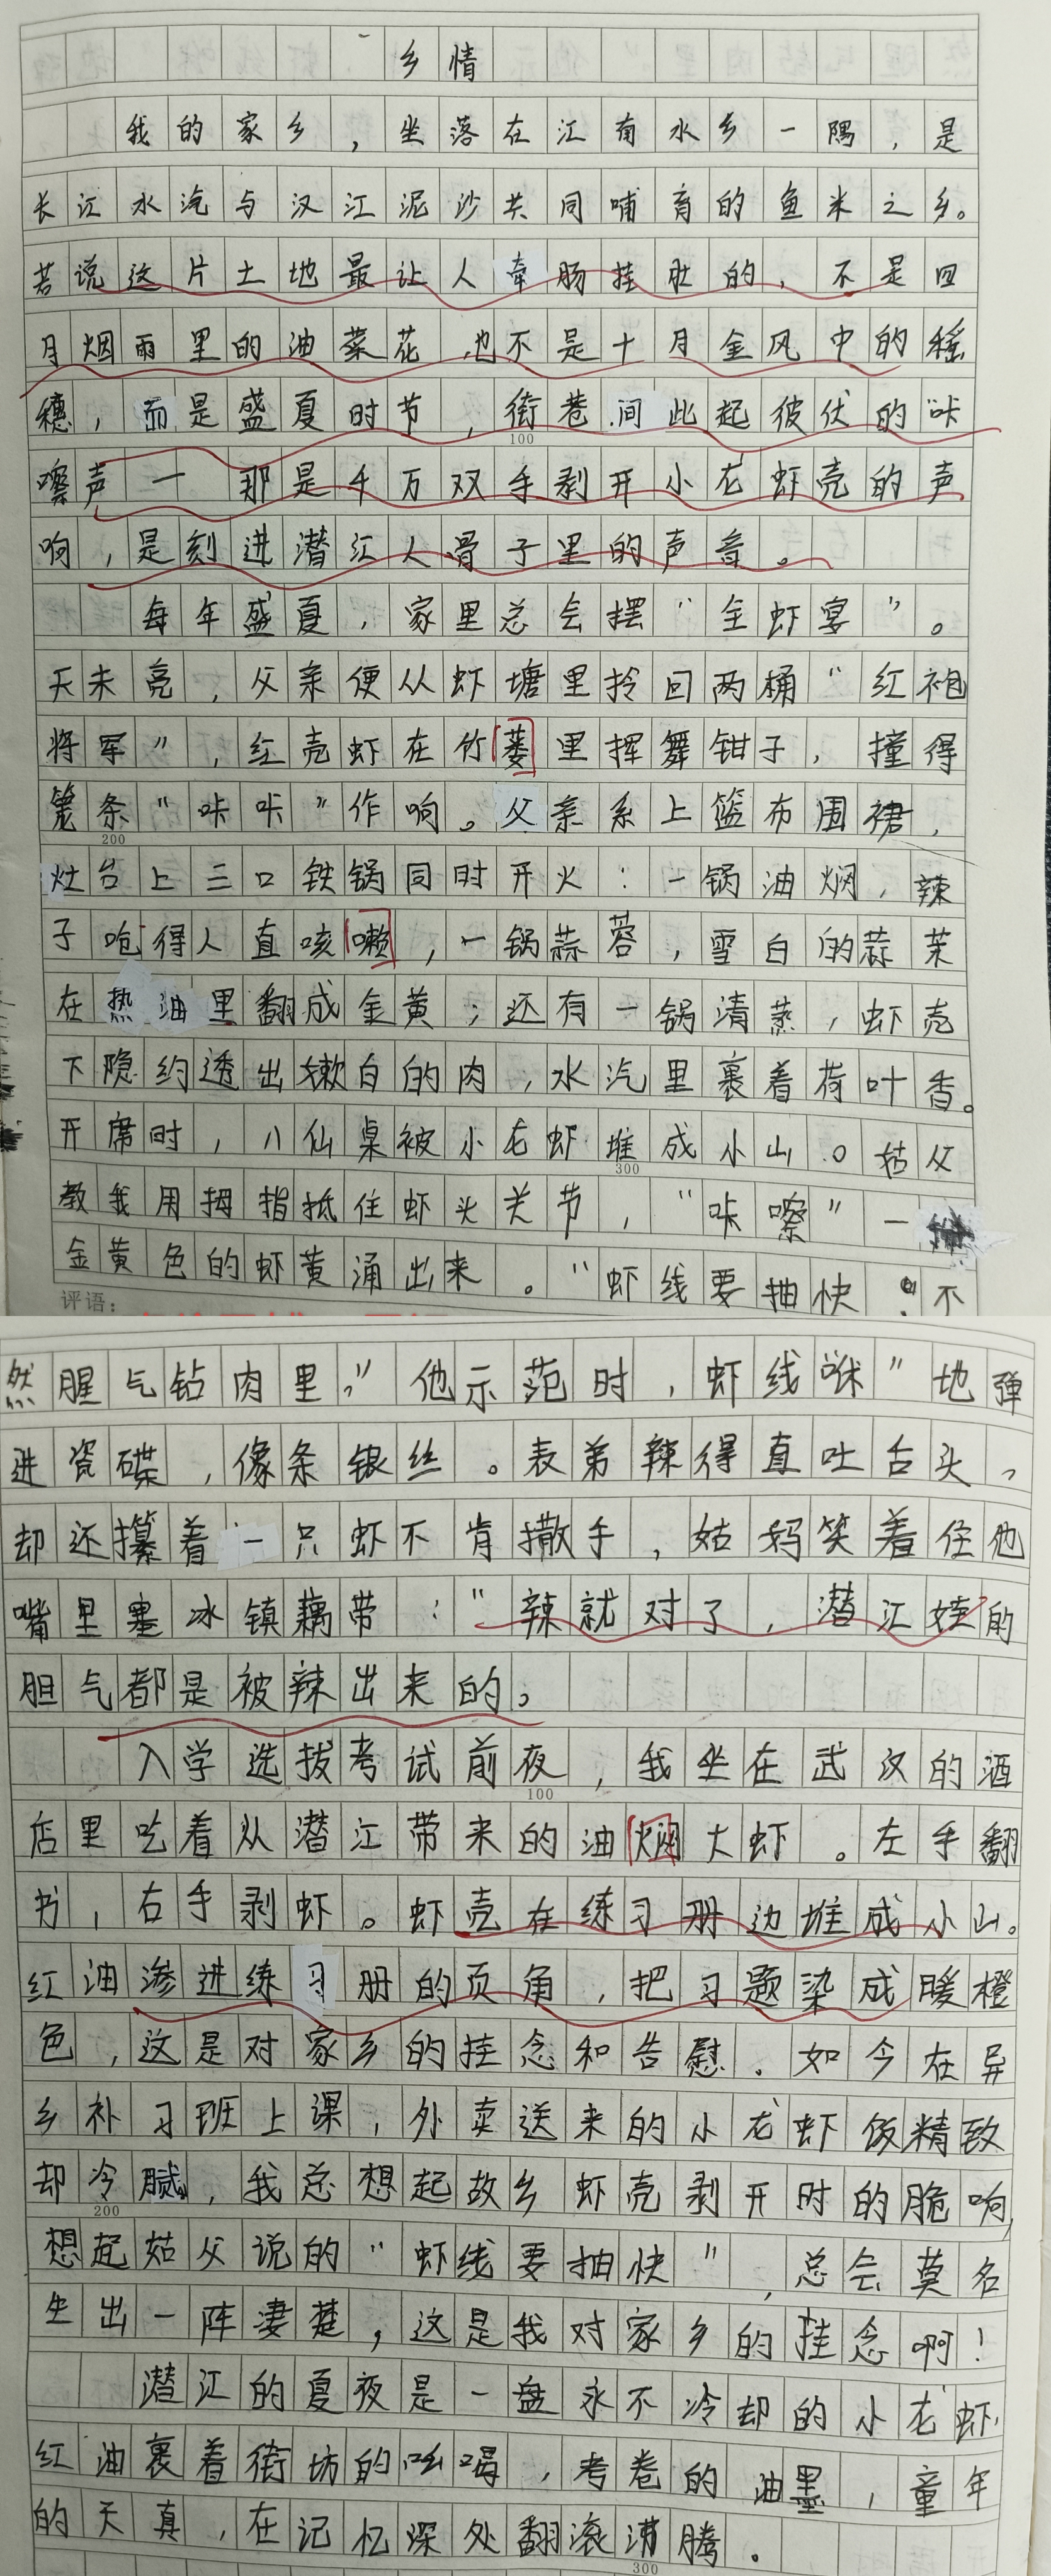 乡情
我的家乡，坐落在江南水乡一隅，是
长江水汽与汉江泥沙共同哺育的鱼米之乡。
若说这片土地最让人牵肠挂肚的，不是四
月烟雨里的油菜花，也不是十月金风中的稻
穗，而是盛夏时节，街巷间此起彼伏的“咔
嚓声一那是千万双手剥开小龙虾壳的声
响，是刻进潜江人骨子里的声音。
每年盛夏，家里总会摆“全虾宴”。
天未亮，父亲便从虾塘里拎回两桶“红袍
将军”，红壳虾在竹蒌里挥舞钳子，撞得
篾条“咔咔”作响。父亲系上篮布围裙，
100
200
灶台上三口铁锅同时开火：一锅油焖，辣
子呛得人直咳嗽，一锅蒜蓉，雪白的蒜茉
在热油里翻成金黄；还有一锅清蒸，虾壳
下隐约透出嫩白的肉，水汽里裹着荷叶香。
开席时，八仙桌被小龙虾堆成小山。姑父
300
教我用拇指抵住虾头关节，“咔嚓”一
金黄色的虾黄涌出来。“虾线要抽快，不
评语：
然腥气钻肉里，”他示范时，虾线咻”地弹
进瓷碟，像条银丝。表弟辣得直吐舌头，
却还攥着一只虾不肯撒手，姑妈笑着往他
嘴里塞冰镇藕带：“辣就对了，潜江娃的
胆气都是被辣出来的。
入学选拔考试前夜，我坐在武汉的酒
100
店里吃着从潜江带来的油焖大虾。左手翻
书，右手剥虾。虾壳在练习册边堆成小山。
红油渗进练习册的页角，把习题染成暖橙
色，这是对家乡的挂念和告慰．如今在异
乡补习班上课，外卖送来的小龙虾饭精致
却冷腻，我总想起故乡虾壳剥开时的脆响，
200
想起姑父说的“虾线要抽快”，总会莫名
生出一阵凄楚，这是我对家乡的挂念啊！
潜江的夏夜是一盘永不冷却的小龙虾，
红油裹着街坊的吆喝，考卷的油墨，童年
的天真，在记忆深处翻滚沸腾．
300